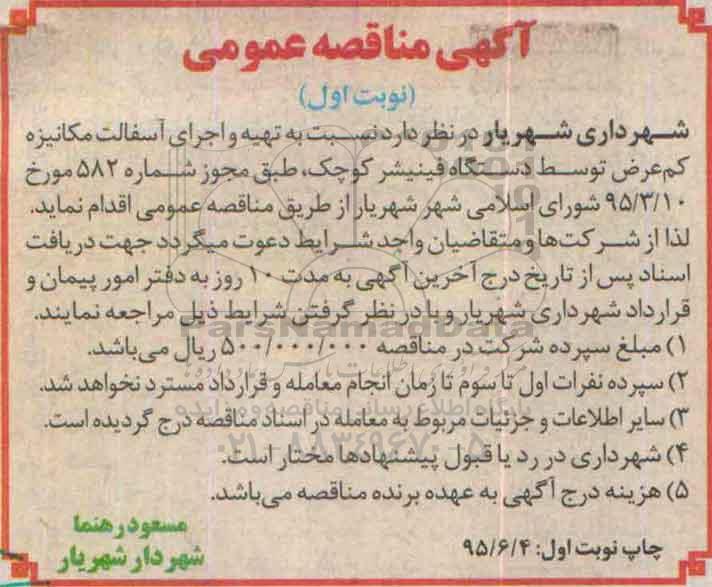 آگهی مناقصه عمومی
(نوبت اول)
شهرداری شهریار در نظر دارد نسبت به تهیه و اجرای آسفالت مکانیزه
کم‌عرض توسط دستگاه فینیشر کوچک، طبق مجوز شماره ۵۸۲ مورخ
۹۵/۳/۱۰ شورای اسلامی شهر شهریار از طریق مناقصه عمومی اقدام نماید.
لذا از شرکت‌ها و متقاضیان واجد شرایط دعوت میگردد جهت دریافت
اسناد پس از تاریخ درج آخرین آگهی به مدت ۱۰ روز به دفتر امور پیمان و
قرارداد شهرداری شهریار و با در نظر گرفتن شرایط ذیل مراجعه نمایند.
ParsNamadData
۱) مبلغ سپرده شرکت در مناقصه ۵۰۰/۰۰۰/۰۰۰ ریال می‌باشد.
۲) سپرده نفرات اول تا سوم تا زمان انجام معامله و قرارداد مسترد نخواهد شد.
پایگاه اطلاع رسانی مناقصه و مزایده
۳) سایر اطلاعات و جزئیات مربوط به معامله در اسناد مناقصه درج گردیده است.
۰۲۱-۸۸۳۴۹۶۷۰-۵
۴) شهرداری در رد یا قبول پیشنهادها مختار است.
۵) هزینه درج آگهی به عهده برنده مناقصه می‌باشد.
چاپ نوبت اول: ۹۵/۶/۴
مسعود رهنما
شهردار شهریار